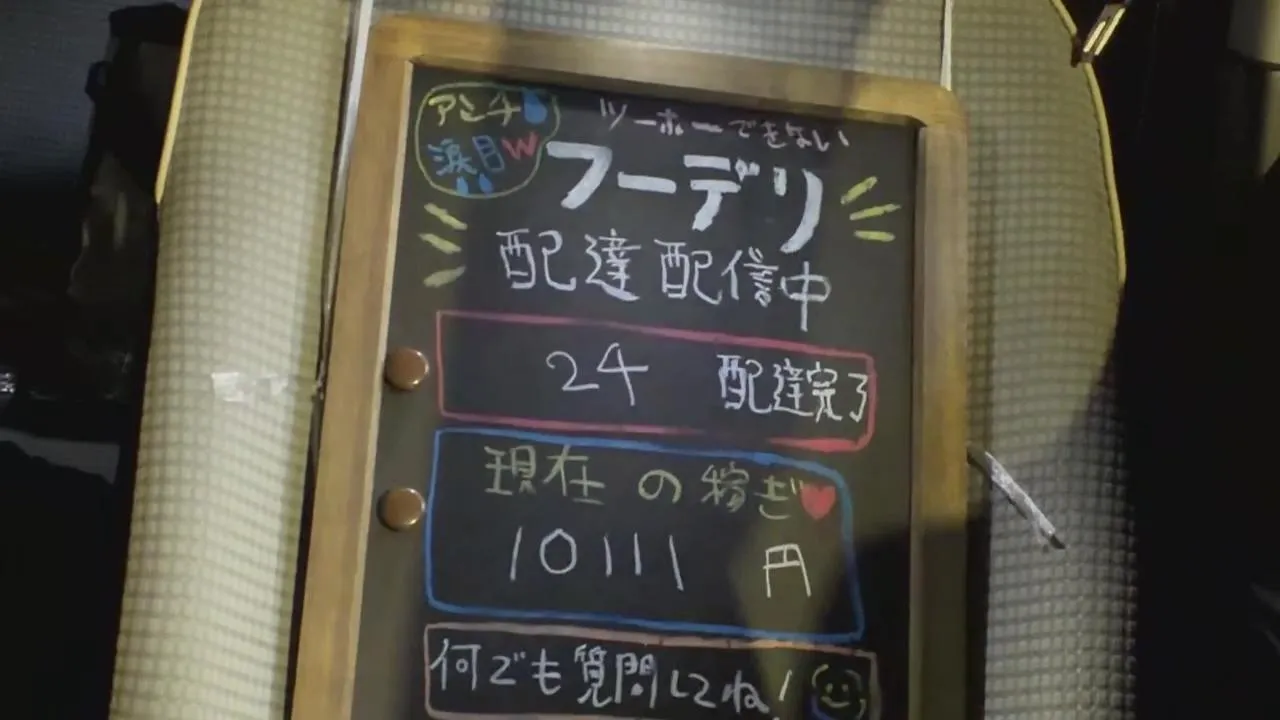 アンチ
涙目w
ツーホーできない
フーデリ
配達配信中
24 配達完了
現在の稼ぎ
10111 円
何でも質問してね!